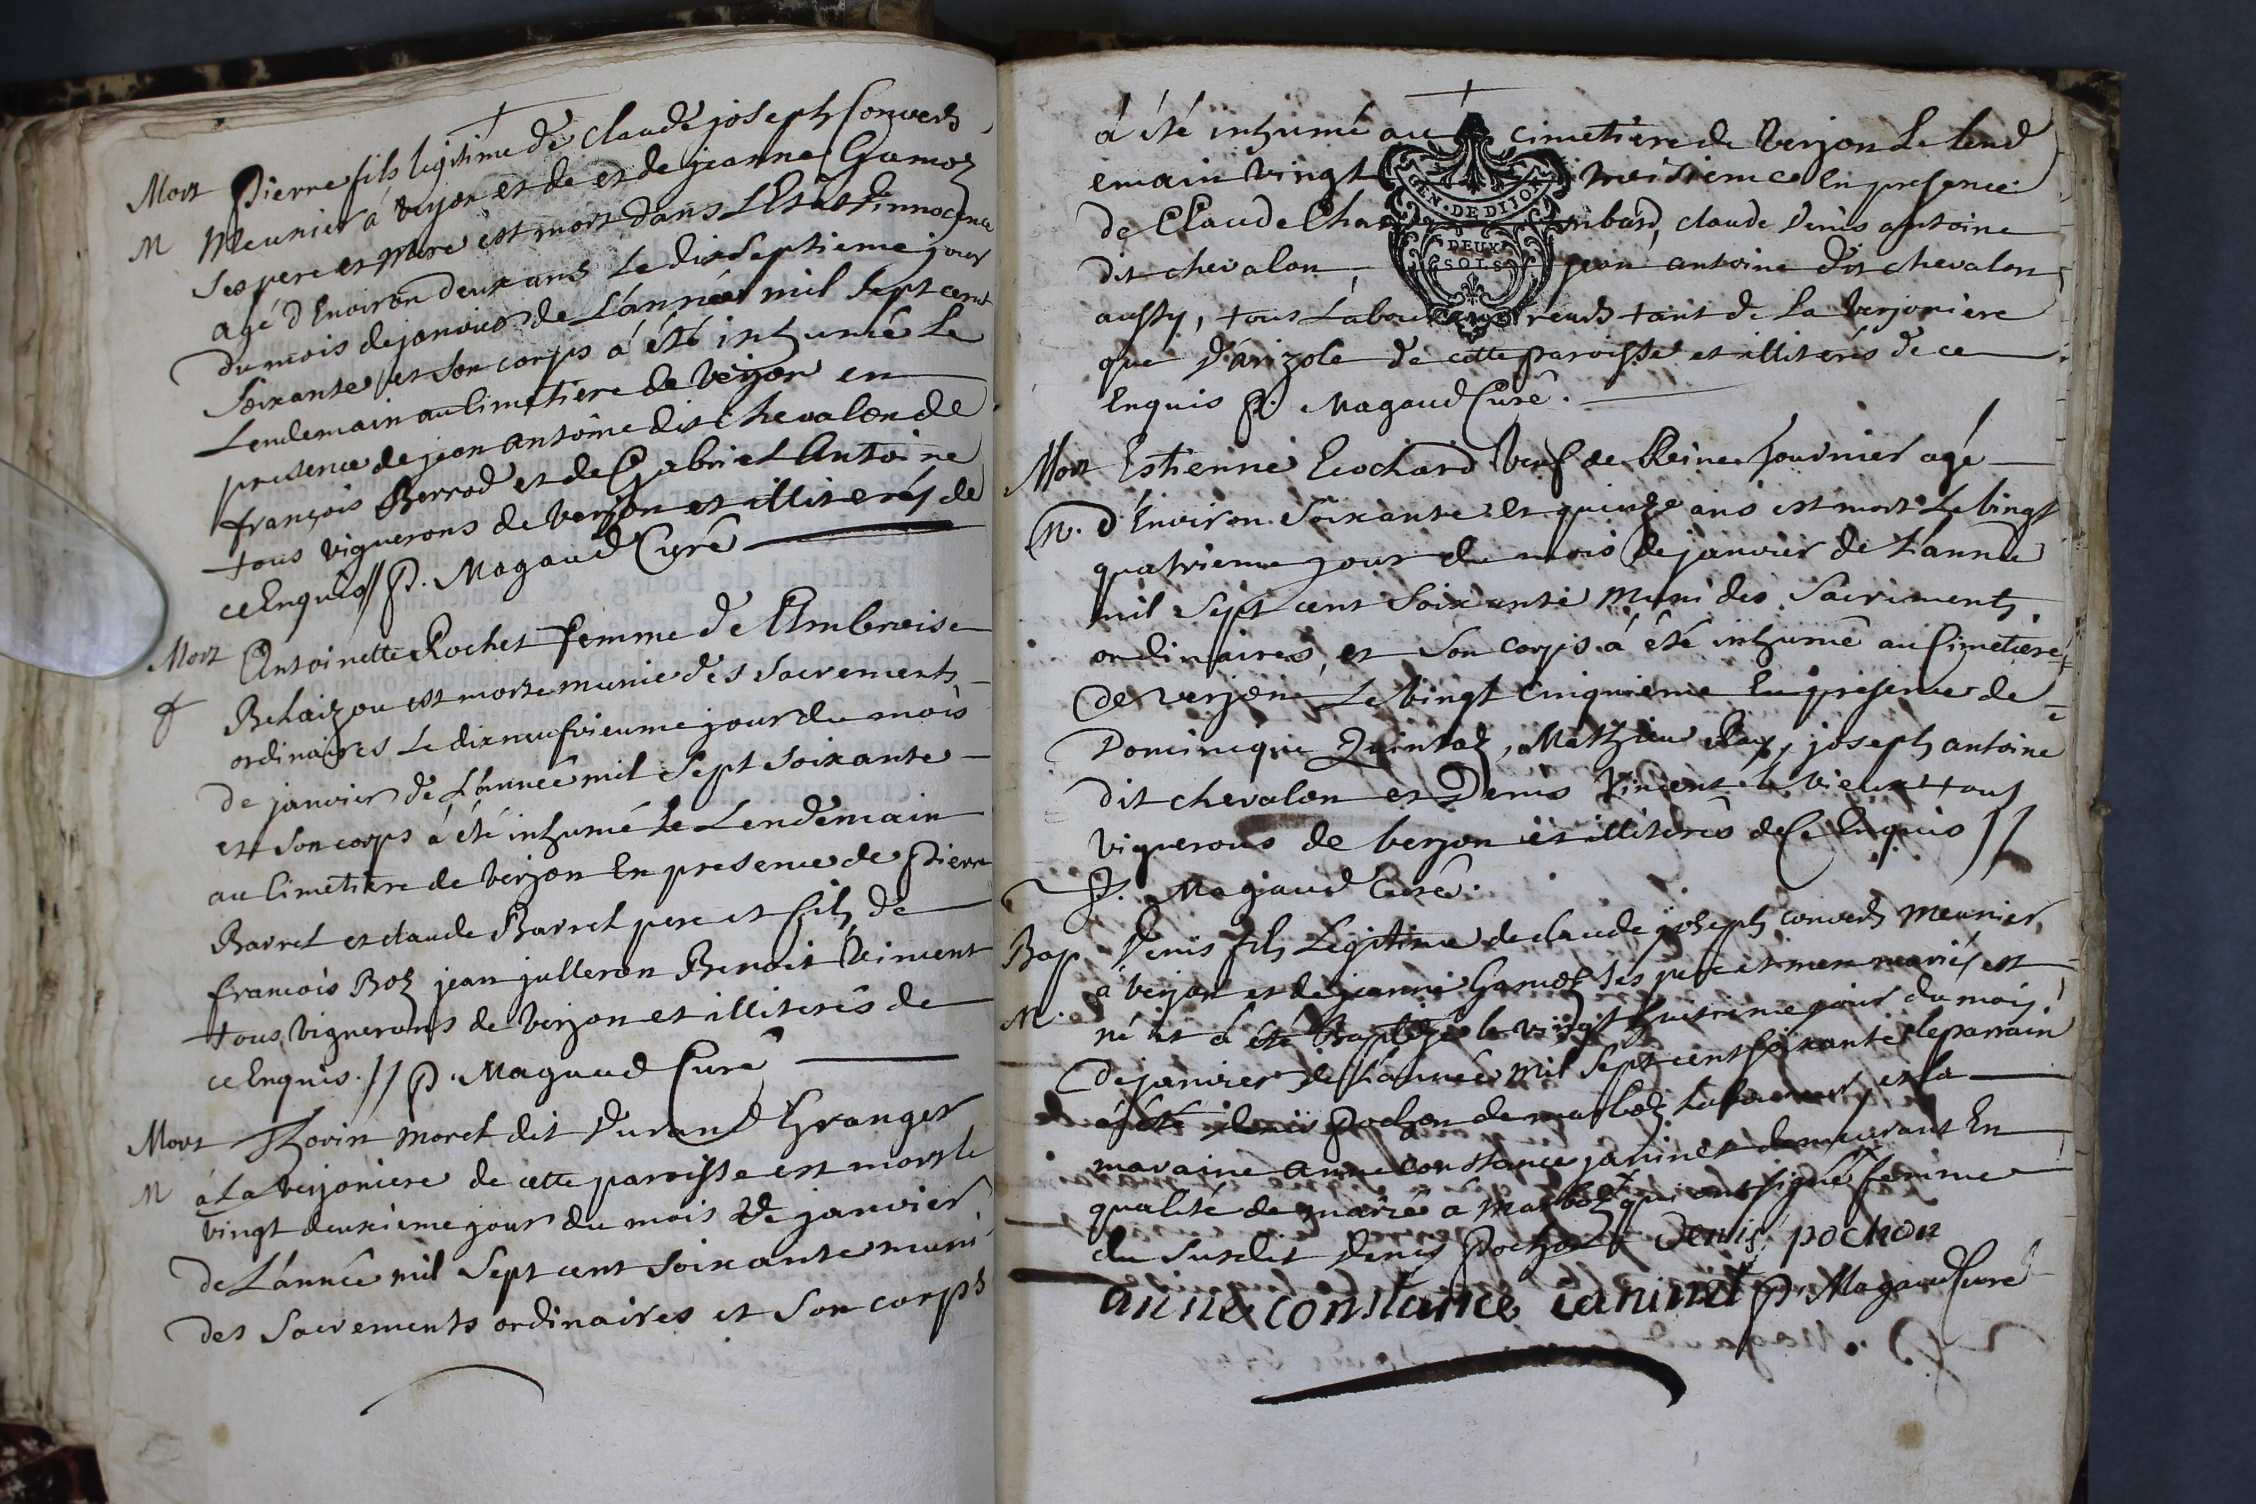 Mort Pierre fils legitime de claude joseph Convers
M Meunier à verjon et de et de jeanne Gamoz
ses pere et mere est mort dans L'Etat d'innocence
agé d'Environ deux ans Le dixseptieme jour
du mois de janvier de L'année mil sept cent
soixante et son corps á été inhumé Le
Lendemain au Cimetiere de verjon en
presence de jean antoine dit chevalon de
françois Berrod et de Gabriel Antoine
tous viguerons de verjon et illiterés de
ce Enquis // P. Magaud Curé
Mort Antoinette Rochet femme de Ambroise
f est morte munie des sacrements
ordinaires Le dixneufvieume jour du mois
de janvier de L'année mil sept soixante
et son corps á été inhumé Le Lendemain
au Cimetiere de verjon En presence de Pierre
Barret et claude Barret pere et fils de
francois Boz jean julleron Benoit Vincent
tous vignerons de verjon et illiterés de
ce Enquis. // P. Magaud Curé
Mort Thorin Morel dit Durand Granger
M á La verjoniere de cette paroisse est mort le
vingt deuxieme jour du mois de janvier
de L'année mil sept cent soixante muni
des Sacrements ordinaires et son corps
á été inhumé au cimetiere de verjon Le lend
emain vingt troisieme En presence
de Claude claude Denis antoine
dit chevalon, jean antoine dit chevalon
GEN. DE DIJON
DEUX
SOLS
aussy, tous Laboureurs tant de La verjoniere
que D'arizole de cette paroisse et illiterés de ce
Enquis P. Magaud Curé.
Mort Estienne Ecochard Veuf de Reine fournier agé
M. d'Environ soixante et quinze ans est mort Le vingt
quatrieme jour du mois de janvier de L'année
mil sept cent soixante muni des Sacriments
ordinaires, et son corps á été inhumé au Cimetiere
de verjon Le vingt cinquieme En presence de
Dominique Quintaz, Mathieu Ray, joseph antoine
dit chevalon et Denis Vincent le vieux tous
viguerons de verjon et illiterés de Ce Enquis //
P. Magaud Curé.
Bap Denis fils Legitime de claude joseph convers meunier,
M. á verjon et de jeanne Gamoz ses pere et mere mariés est
né et á été Baptizé le vingt huitieme jour du mois
de janvier de L'année mil sept cent soixante le parrain
á été denis Pochon de marboz Laboureur, et la
maraine anne constance janinet demeurant En
qualité de mariée á Marboz qui ont signé femme
du susdit Denis Pochon Denis pochon
anne constance ianinet P. Magaud Curé